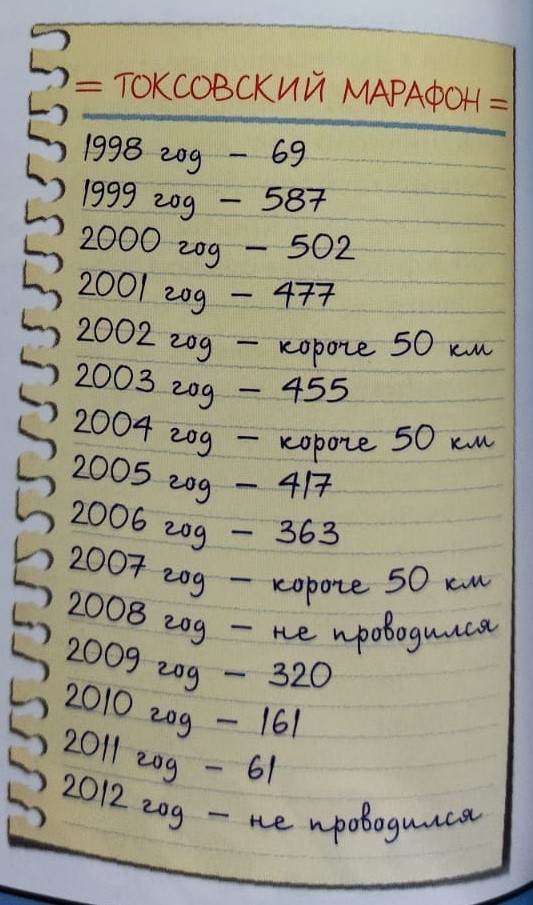 = ТОКСОВСКИЙ МАРАФОН =
1998 год – 69
1999 год – 587
2000 год – 502
2001 год – 477
2002 год – короче 50 км
2003 год – 455
2004 год – короче 50 км
2005 год – 417
2006 год – 363
2007 год – короче 50 км
2008 год – не проводился
2009 год – 320
2010 год – 161
2011 год – 61
2012 год – не проводился